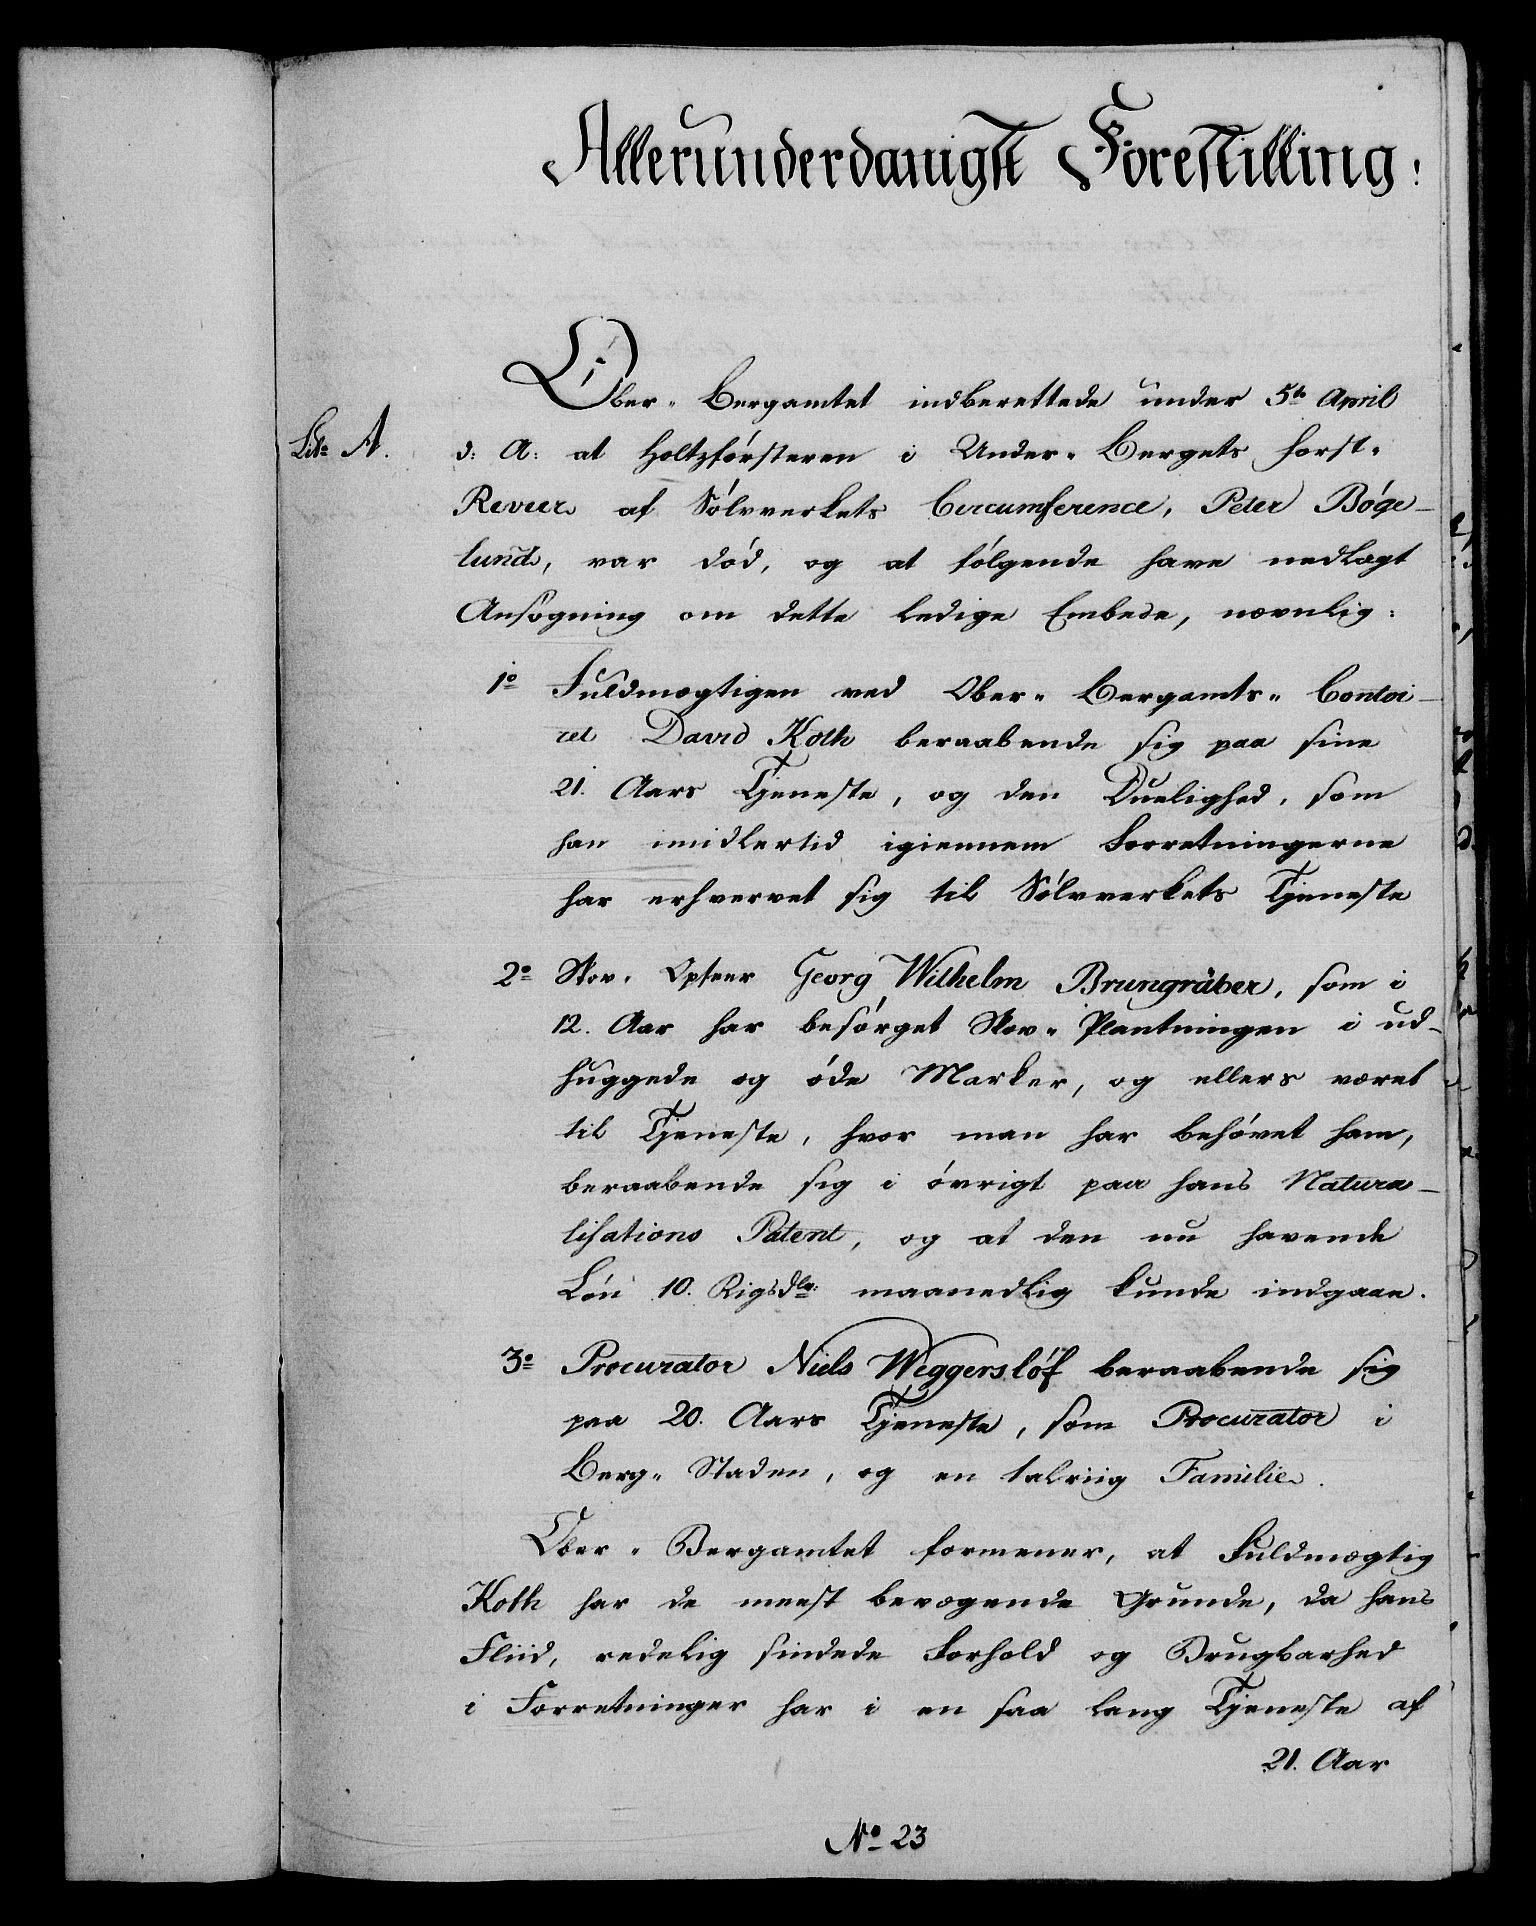 Allerunderdanigst Forestilling:
Ober-Bergamtet indberettede under 5te April
Litr A. d: A: at Holtzførsteren i Under-Bergets Forst-
Reveer af Sølvverkets Circumference, Peter Bøge-
lund, var død, og at følgende have nedlagt
Ansøgning om dette ledige Embede, nævnlig:
1o Fuldmægtigen ved Ober-Bergamts-Contoi-
ret David Koth beraabende sig paa sine
21. Aars Tjeneste, og den Duelighed, som
han imidlertid igiennem Forretningerne
har erhvervet sig til Sølvverkets Tjeneste
2o Skov-Opseer Georg Wilhelm Brungräber, som i
12. Aar har besørget Skov-Plantningen i ud-
huggede og øde Marker, og ellers været
til Tjeneste, hvor man har behøvet ham,
beraabende sig i øvrigt paa hans Natura-
lisations Patent, og at den nu havende
Løn 10. Rigsdlr: maanedlig kunde indgaae.
3o Procurator Niels Weggersløf beraabende sig
paa 20. Aars Tjeneste, som Procurator i
Berg-Staden, og en talriig Familie.
Ober-Bergamtet formener, at Fuldmægtig
Koth har de meest bevægende Grunde, da hans
Fliid, redelig sindede Forhold og Brugbarhed
i Forretninger har i en saa lang Tjeneste af
21. Aar
No 23